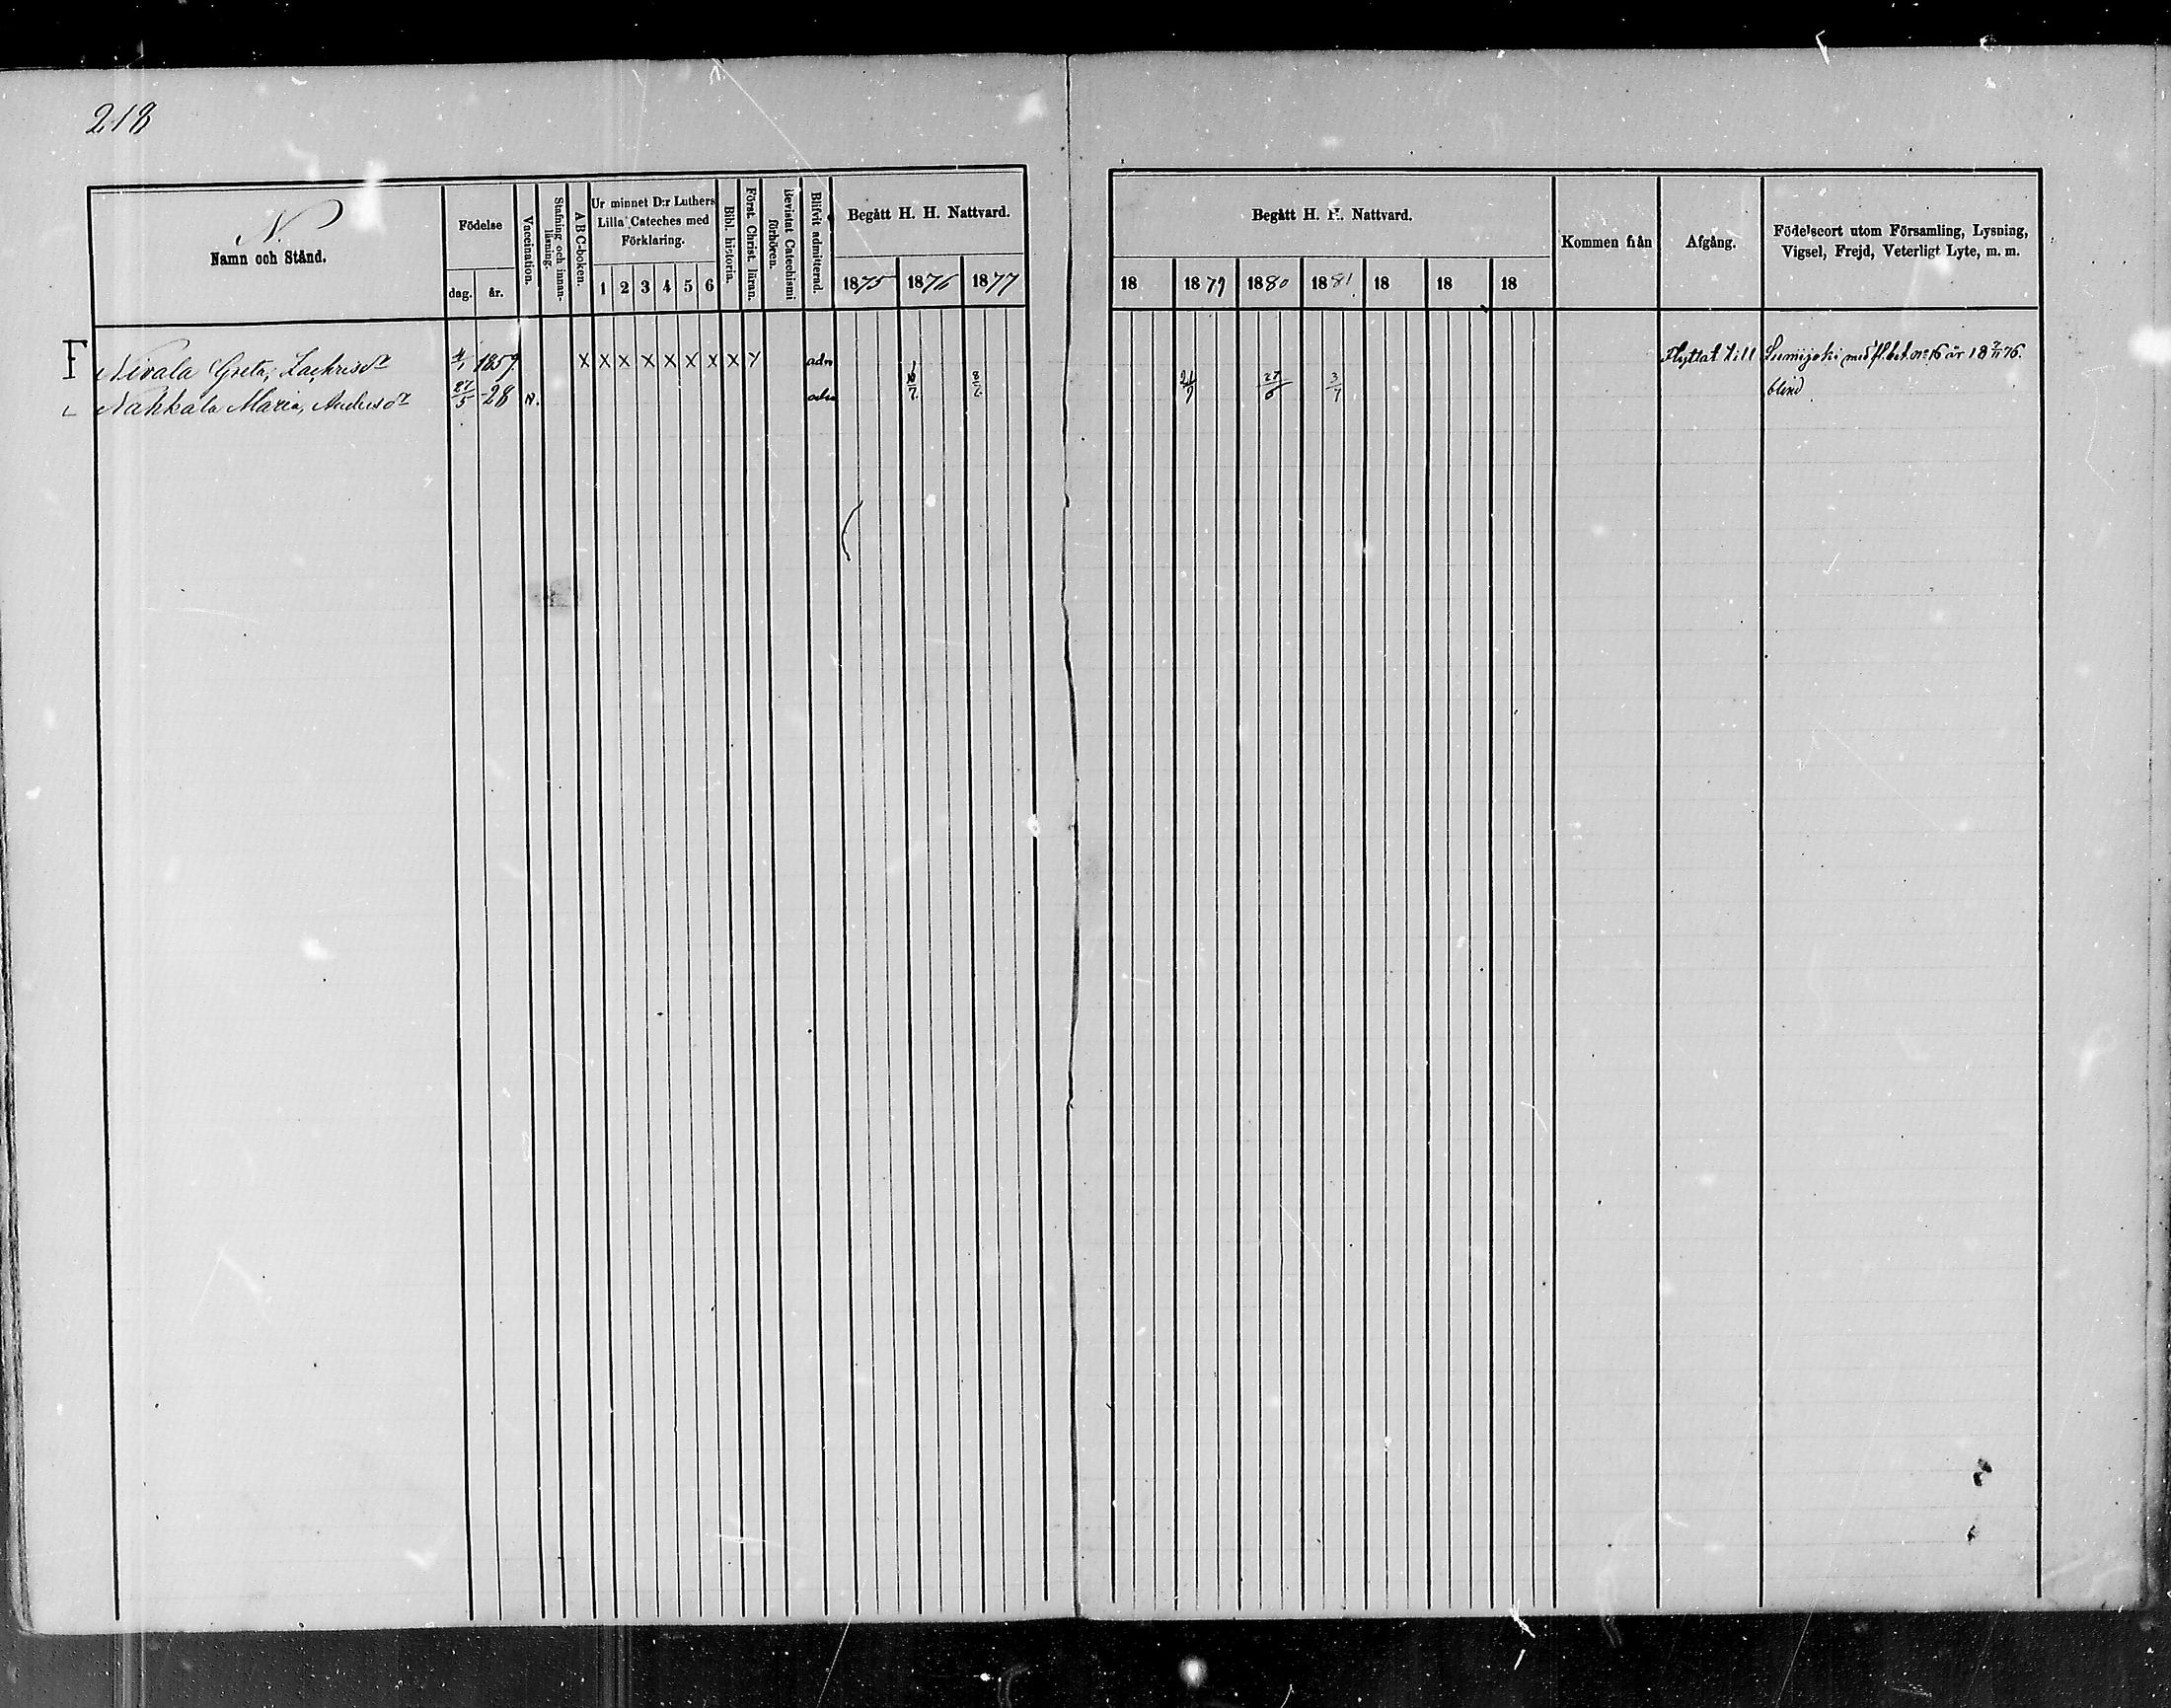 218
N.
Namn och Stånd.
Födelse
dag. år.
Vaccination.
Stafning och innanläsning.
ABC-boken.
Ur minnet D:r Luthers
Lilla Cateches med
Förklaring.
1 2 3 4 5 6
Bibl. historia.
Först. Christ. läran.
Bevistat Catechismi förhören.
Blifvit admitterad.
Begått H. H. Nattvard.
1875 1876 1877
Begått H. H. Nattvard.
18 1879 1880 1881 18 18 18
Kommen från
Afgång.
Födelseort utom Församling, Lysning,
Vigsel, Frejd, Veterligt Lyte, m. m.
F Nivala Greta, Zachrisdr 4/1 1859 X X X X X X X X Y adm Flyttat till Lumijoki med fl. bet. No 16 år 18 7/11 76.
Nahkala Maria, Andersdr 27/5 -28 N. adm 8/7 27/6 3/7 blind